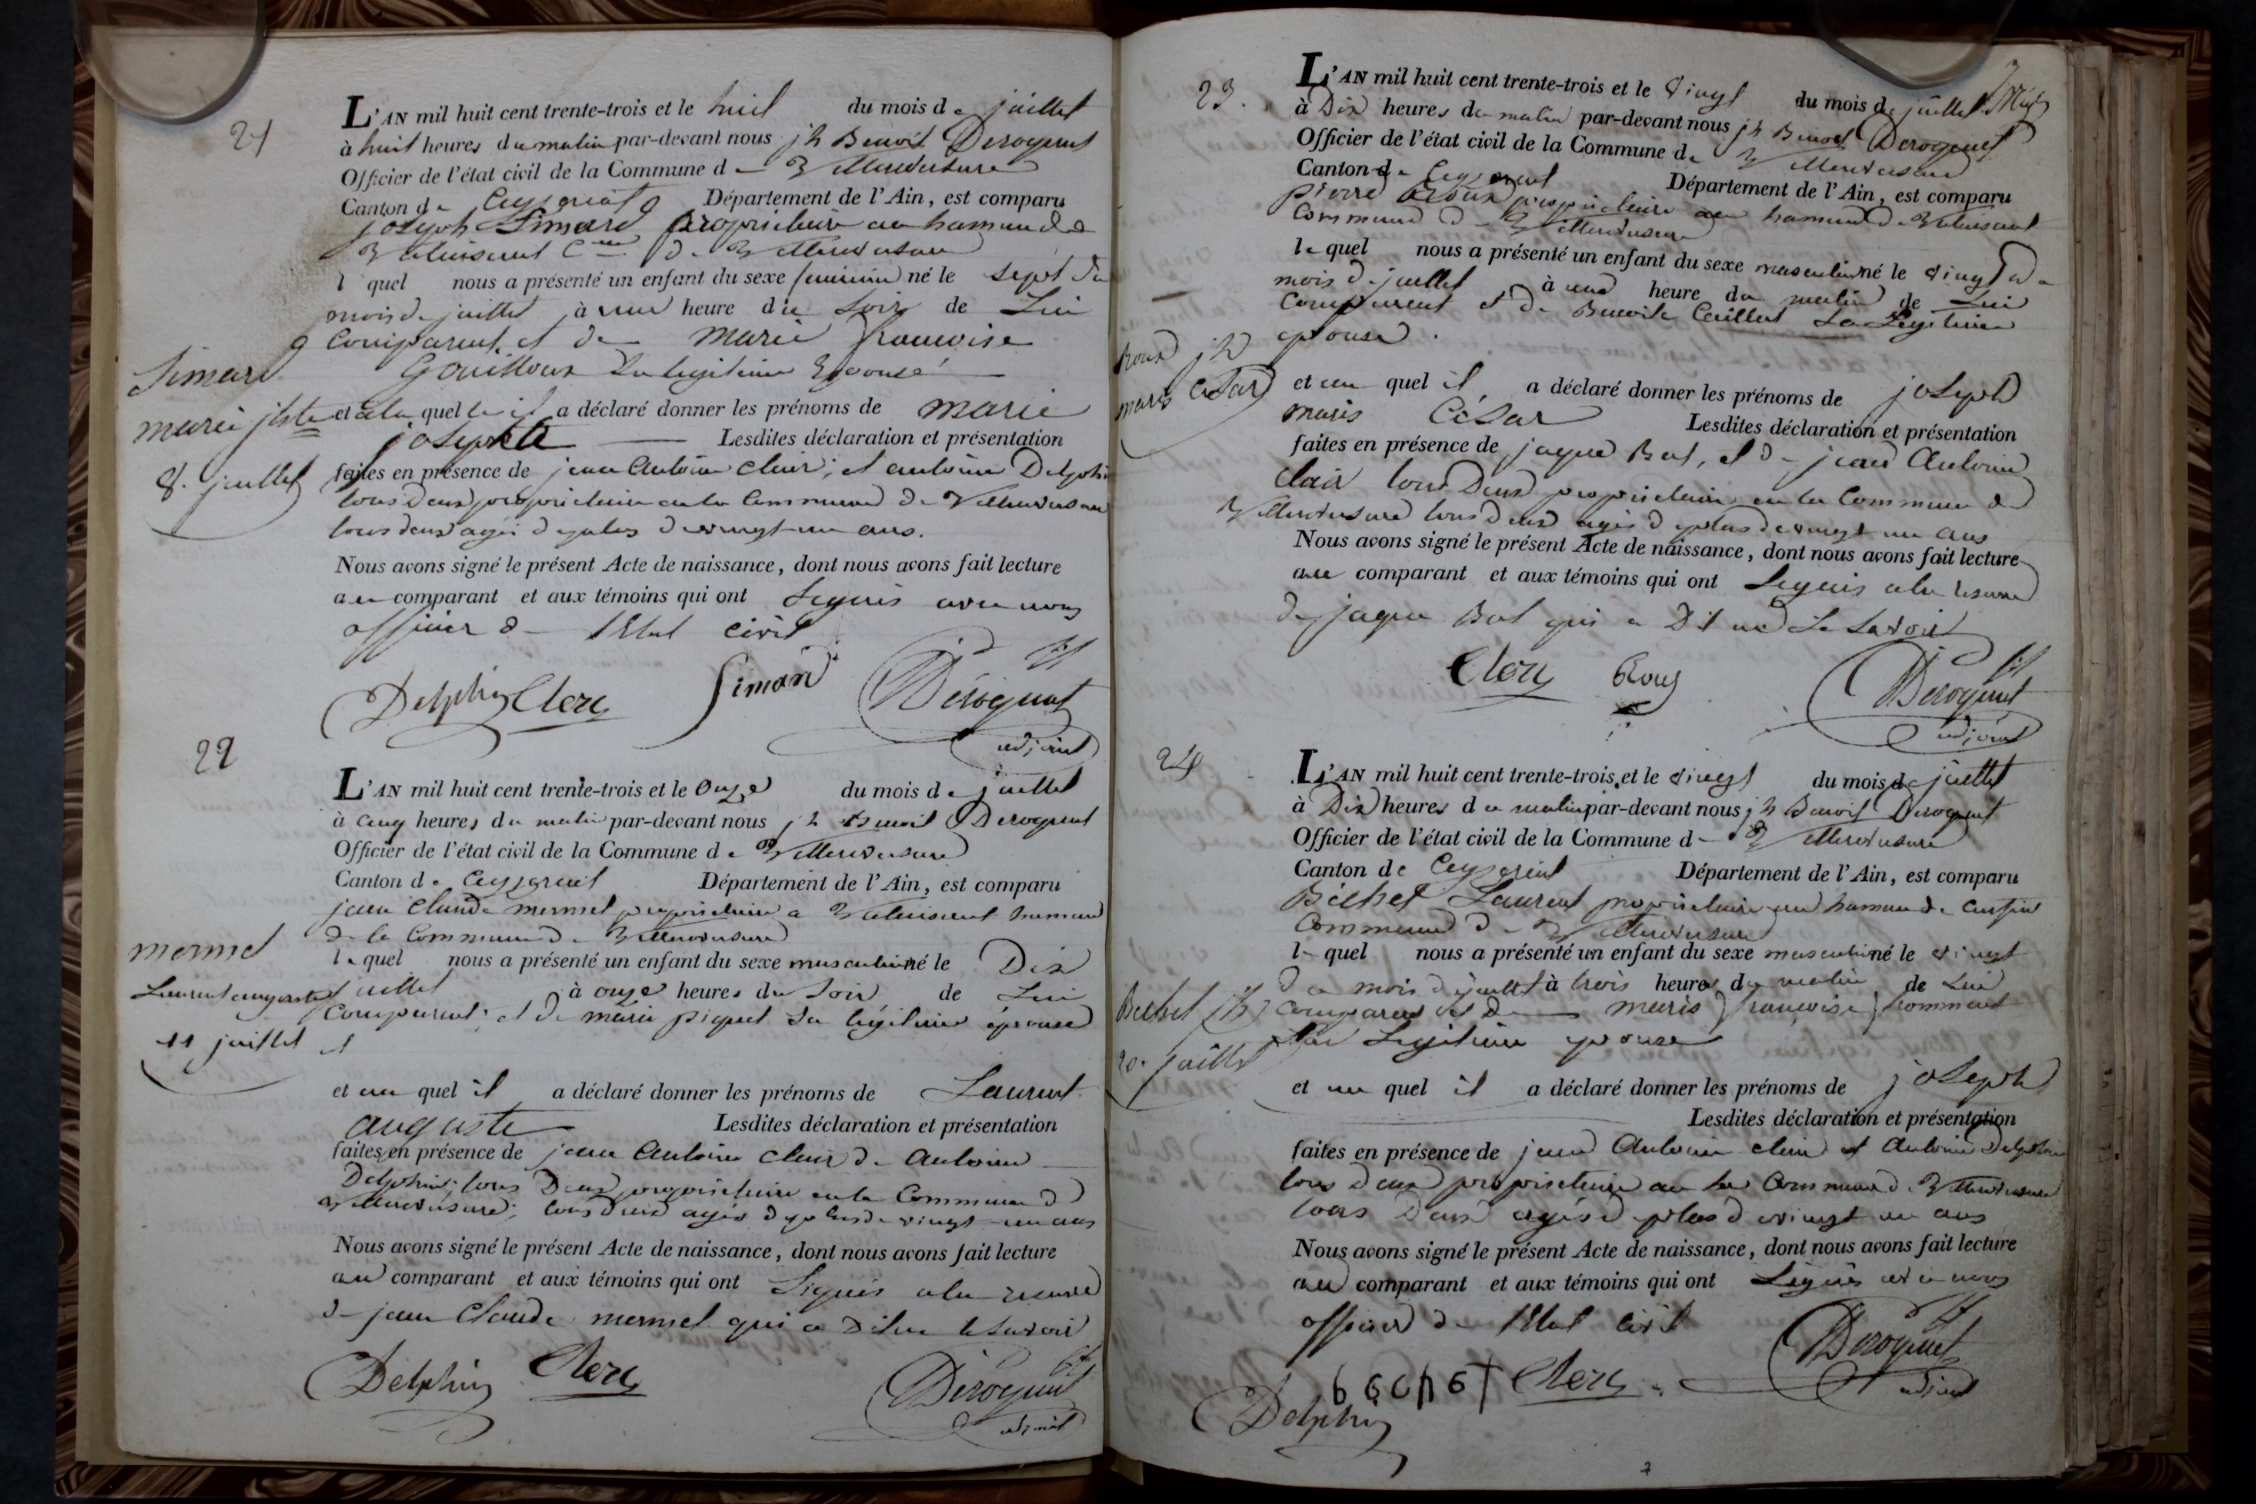 21
L'AN mil huit cent trente-trois et le huit du mois de juillet
à huit heures du matin par-devant nous jh Benoit Deroquet
Officier de l'état civil de la Commune de Villereversure
Canton de Ceyzeriat Département de l'Ain, est comparu
joseph Simard propriettaire au hameau de
Cne de Villereversure
lequel nous a présenté un enfant du sexe feminin né le sept du
mois de juillet à une heure du soir de Lui
Comparent et de marie francoise
Gouilloux Sa legitime Epouse
Simard
marie jhte
8. juillet
et a la quelle il a déclaré donner les prénoms de marie
josephte Lesdites déclaration et présentation
faites en présence de jean Antoine clair, et antoine Delphin
tous deux propriettaire en la Commune de Villereversure
tous deux agés de plus de vingt un ans.
Nous avons signé le présent Acte de naissance, dont nous avons fait lecture
au comparant et aux témoins qui ont Signés avec nous
officier de l'Etat civil
Delphin Clerc Simard Deroquet
adjoint
22
L'AN mil huit cent trente-trois et le Onze du mois de juillet
à cinq heures du matin par-devant nous jh Benoit Deroquet
Officier de l'état civil de la Commune de Villereversure
Canton de Ceyzeriat Département de l'Ain, est comparu
jean Claude mermet propriettaire a hameau
de la Commune de Villereversure
mermet
Laurent auguste
11 juillet
lequel nous a présenté un enfant du sexe masculin né le Dix
juillet à onze heures du Soir de Lui
Comparent et de marie piquet Sa légitime épouse
et
et au quel il a déclaré donner les prénoms de Laurent
auguste Lesdites déclaration et présentation
faites en présence de jean Antoine clair de Antoine
Delphin, tous Deux propriettaire en la Commune de
Villereversure, tous deux agés de plus de vingt-un ans
Nous avons signé le présent Acte de naissance, dont nous avons fait lecture
au comparant et aux témoins qui ont Signés a la reserve
de jean Claude mermet qui a Dit ne le savoir
Delphin Clerc Deroquet
adjoint
23.
L'AN mil huit cent trente-trois et le vingt du mois de juillet
à Dix heures du matin par-devant nous jh Benoit Deroquet
Officier de l'état civil de la Commune de Villereversure
Canton de Ceyzeriat Département de l'Ain, est comparu
pierre Roux propriettaire au hameau de
Commune de Villereversure
lequel nous a présenté un enfant du sexe masculin né le vingt de
mois de juillet à une heure du matin de Lui
Comparent et de Benoite Caillet Sa Legitime
epouse.
Roux jh
marie César
et au quel il a déclaré donner les prénoms de joseph
marie César Lesdites déclaration et présentation
faites en présence de jaque Bat, et de jean Antoine
Clair tous Deux propriettaire en la Commune de
Villereversure tous deux agés de plus de vingt un ans
Nous avons signé le présent Acte de naissance, dont nous avons fait lecture
au comparant et aux témoins qui ont Signés a la reserve
de jaque Bat qui a Dit ne Le Savoir
Clerc Roux Deroquet
adjoint
24
L'AN mil huit cent trente-trois et le vingt du mois de juillet
à Dix heures du matin par-devant nous jh Benoit Deroquet
Officier de l'état civil de la Commune de Villereversure
Canton de Ceyzeriat Département de l'Ain, est comparu
Béchet Laurent propriettaire au hameau de
Commune de Villereversure
lequel nous a présenté un enfant du sexe masculin né le vingt
du mois de juillet à trois heures du matin de Lui
Comparent et de marie francoise
Sa Legitime epouse
Béchet jh
20. juillet
et au quel il a déclaré donner les prénoms de joseph
Lesdites déclaration et présentation
faites en présence de jean Antoine clair et Antoine Delphin
tous deux propriettaire en la Commune de Villereversure
tous Deux agés de plus de vingt un ans
Nous avons signé le présent Acte de naissance, dont nous avons fait lecture
au comparant et aux témoins qui ont Signés avec nous
officier de l'Etat civil
bechet Clerc Deroquet
Delphin adjoint